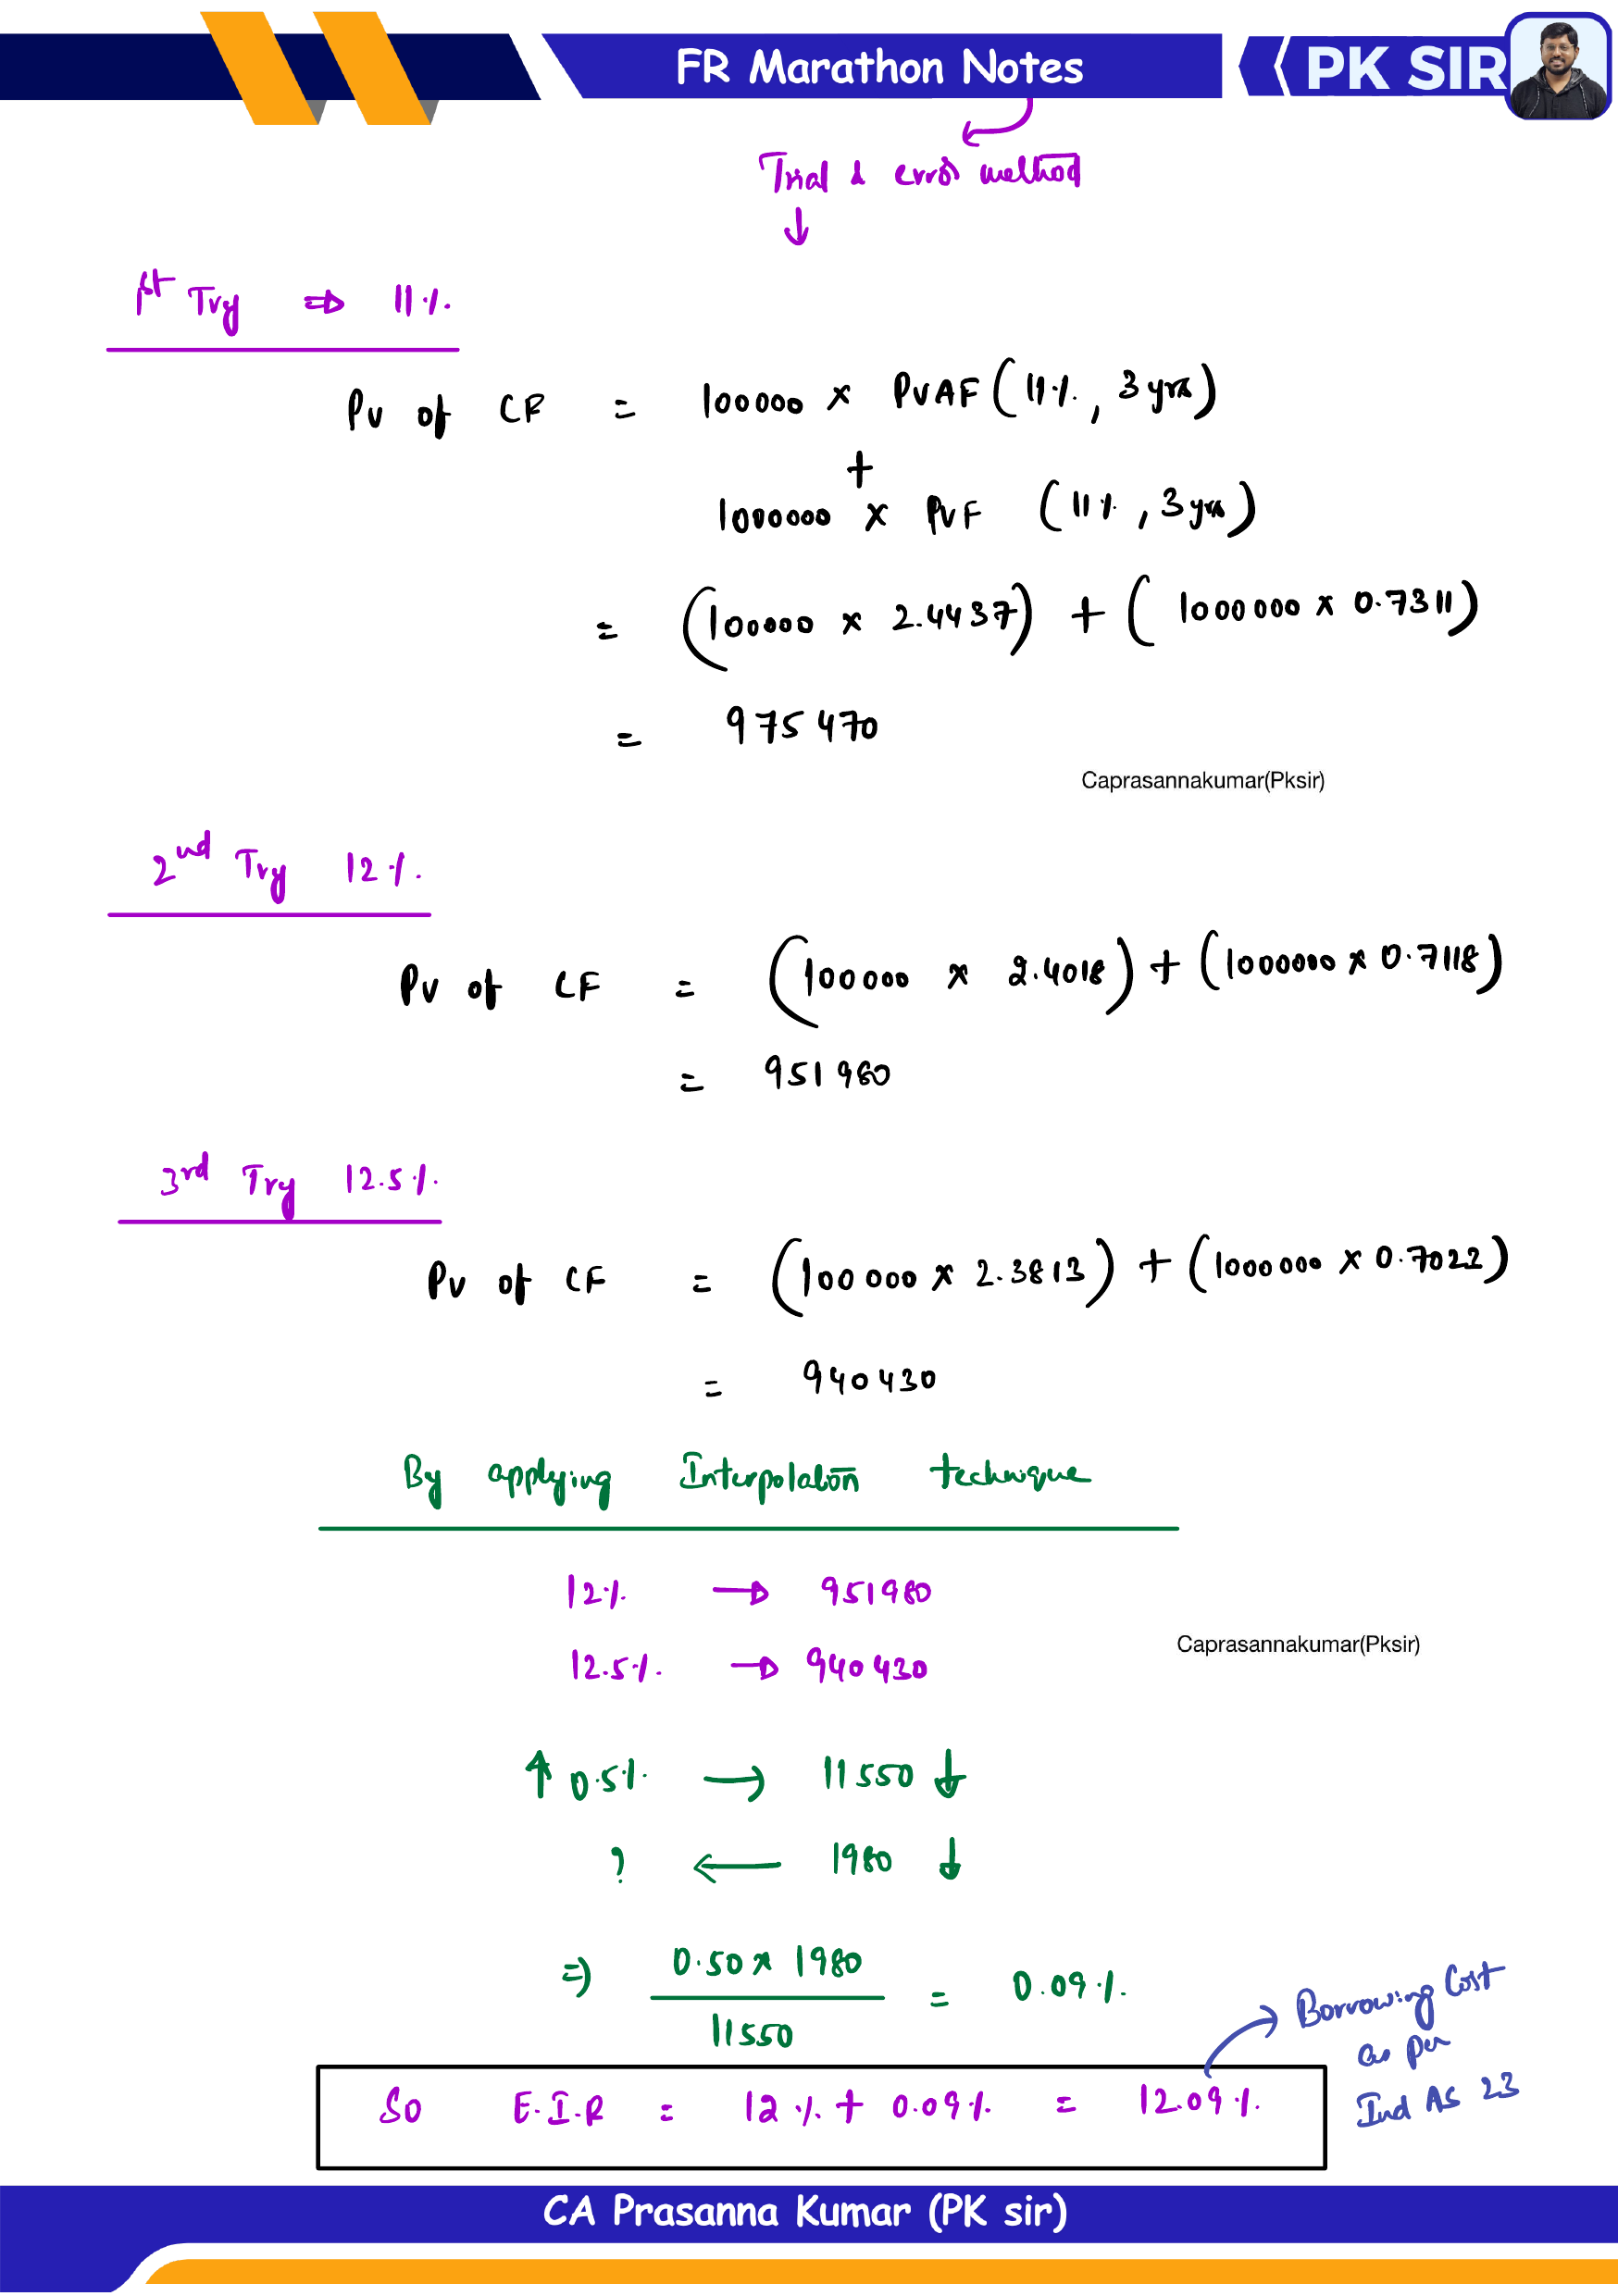 FR Marathon Notes
PK SIR
Trial & error method
1st Try ⇒ 11%
PV of CF = 100000 x PVAF (11%, 3 yrs)
+
1000000 x PVF (11%, 3 yrs)
= (100000 x 2.4437) + (1000000 x 0.7311)
= 975470
Caprasannakumar(Pksir)
2nd Try 12%
PV of CF = (100000 x 2.4018) + (1000000 x 0.7118)
= 951980
3rd Try 12.5%
PV of CF = (100000 x 2.3813) + (1000000 x 0.7022)
= 940430
By applying Interpolation technique
12% → 951980
Caprasannakumar(Pksir)
12.5% → 940430
↑ 0.5% → 11550 ↓
? ← 1980 ↓
⇒ 0.50 x 1980
= 0.09%
11550
Borrowing Cost
as per
Ind AS 23
So E.I.R = 12% + 0.09% = 12.09%
CA Prasanna Kumar (PK sir)